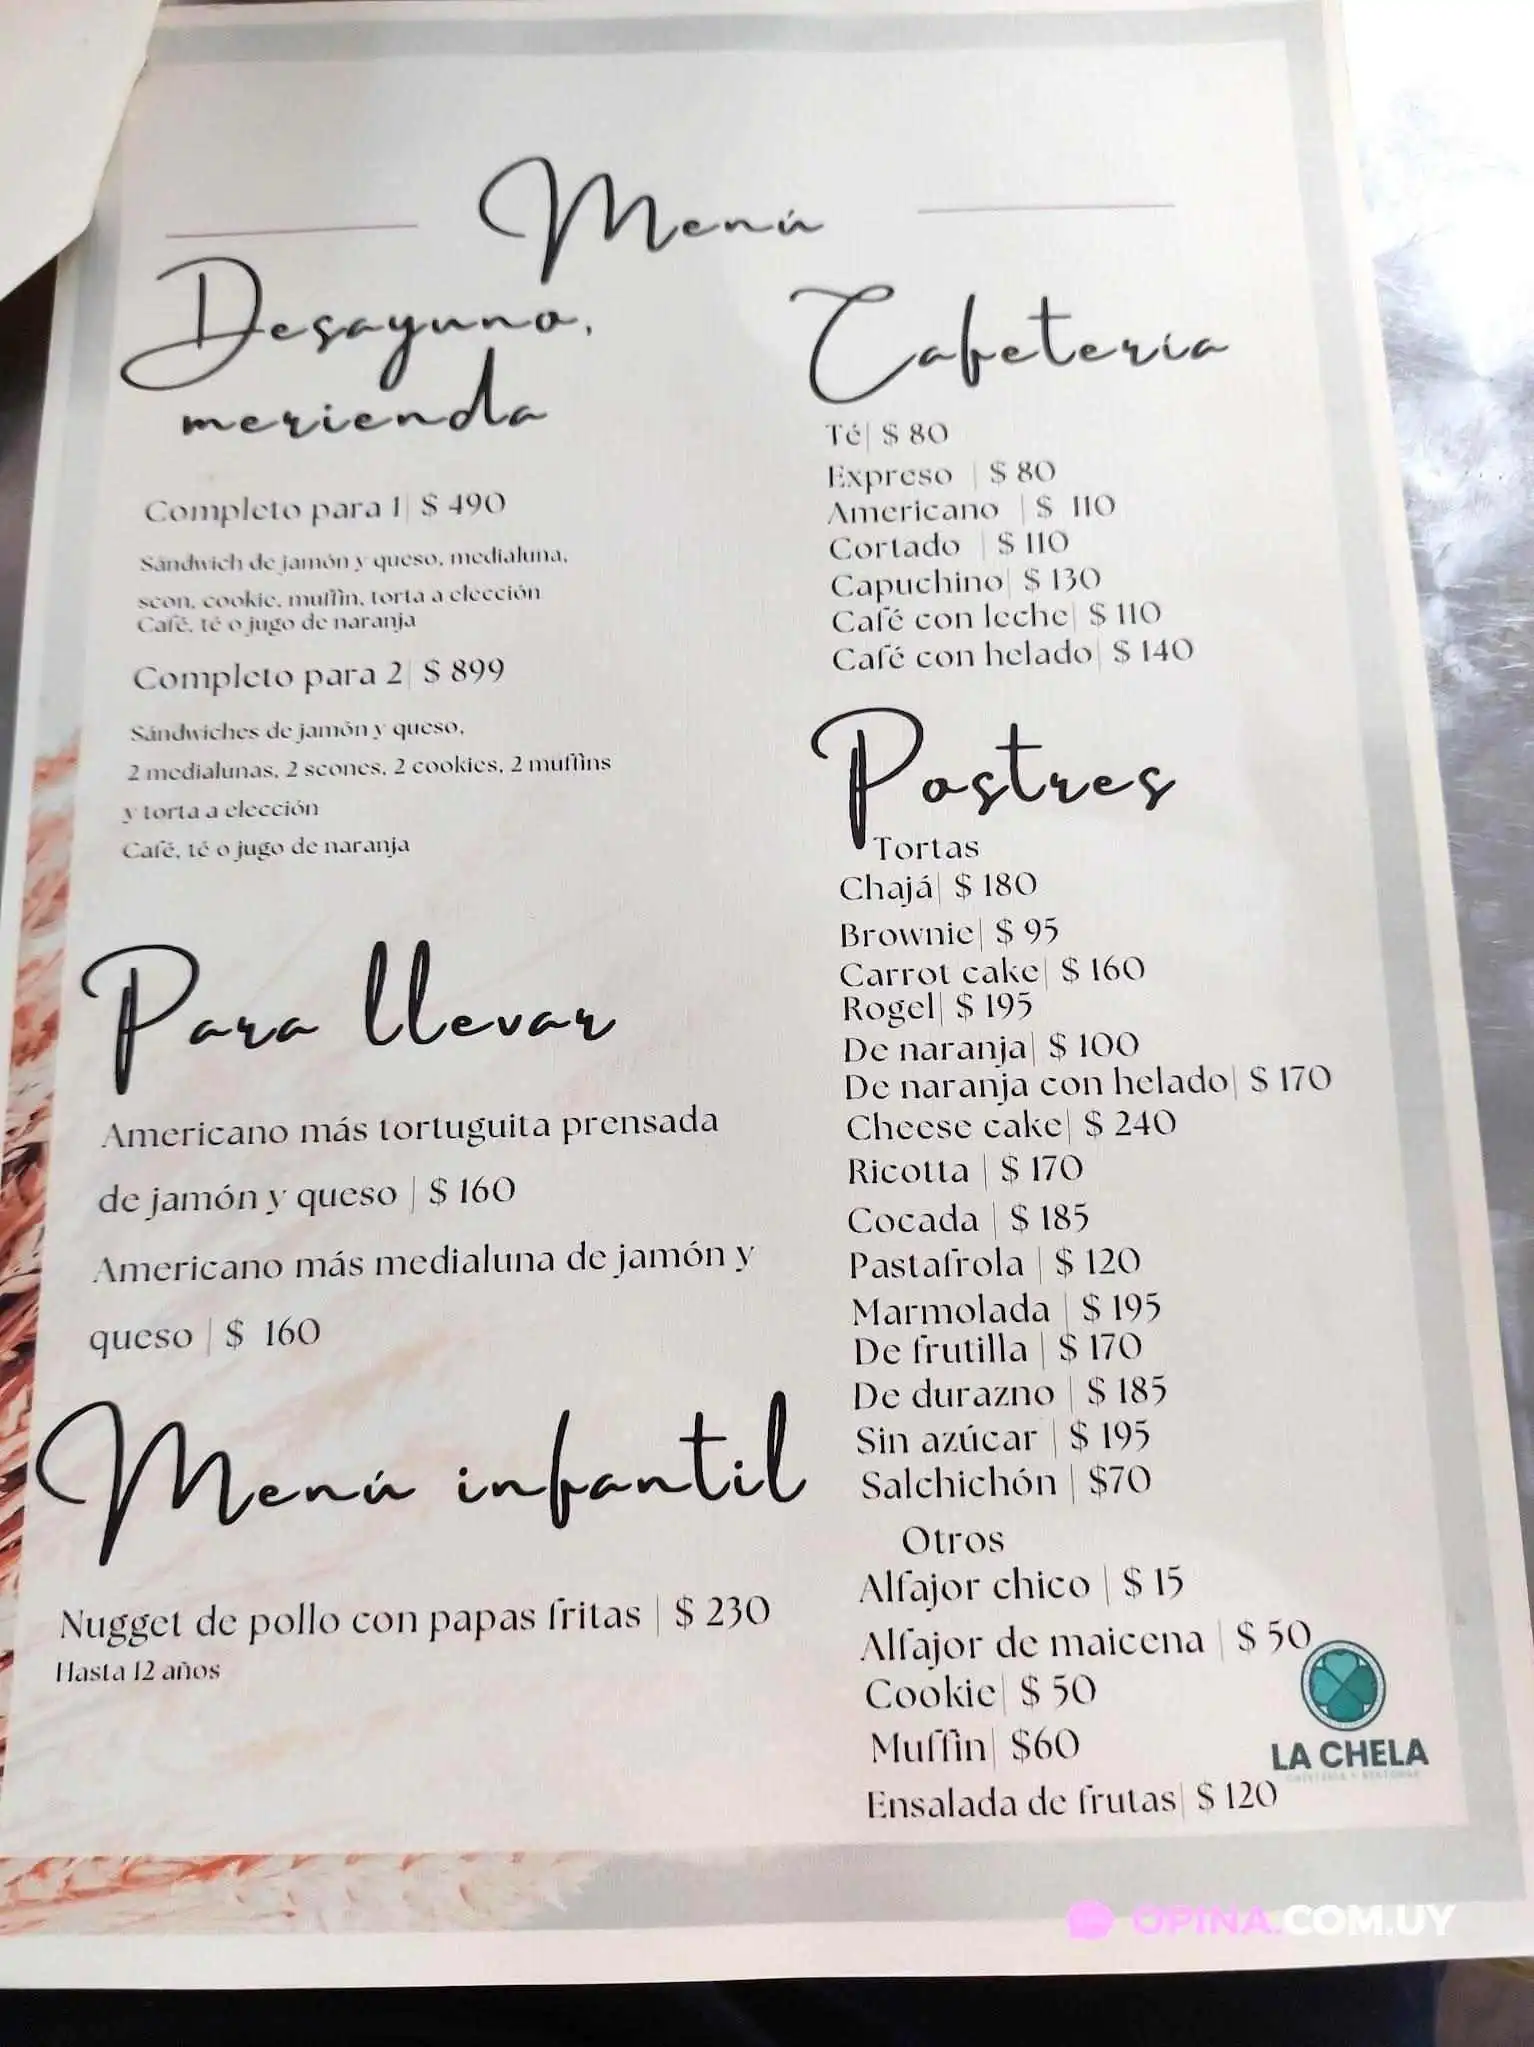 Menú
Desayuno,
merienda
Completo para 1| $ 490
Sándwich de jamón y queso, medialuna,
scon, cookie, muffin, torta a elección
Café, té o jugo de naranja
Completo para 2| $ 899
Sándwiches de jamón y queso,
2 medialunas, 2 scones, 2 cookies, 2 muffins
y torta a elección
Café, té o jugo de naranja
Para llevar
Americano más tortuguita prensada
de jamón y queso | $ 160
Americano más medialuna de jamón y
queso | $ 160
Menú infantil
Nugget de pollo con papas fritas | $ 230
Hasta 12 años
Cafetería
Té| $ 80
Expreso | $ 80
Americano | $ 110
Cortado | $ 110
Capuchino| $ 130
Café con leche| $ 110
Café con helado| $ 140
Postres
Tortas
Chajá| $ 180
Brownie| $ 95
Carrot cake| $ 160
Rogel| $ 195
De naranja| $ 100
De naranja con helado| $ 170
Cheese cake| $ 240
Ricotta | $ 170
Cocada | $ 185
Pastafrola | $ 120
Marmolada | $ 195
De frutilla | $ 170
De durazno | $ 185
Sin azúcar | $ 195
Salchichón | $70
Otros
Alfajor chico | $ 15
Alfajor de maicena | $ 50
Cookie| $ 50
Muffin| $60
Ensalada de frutas| $ 120
LA CHELA
OPINA.COM.UY